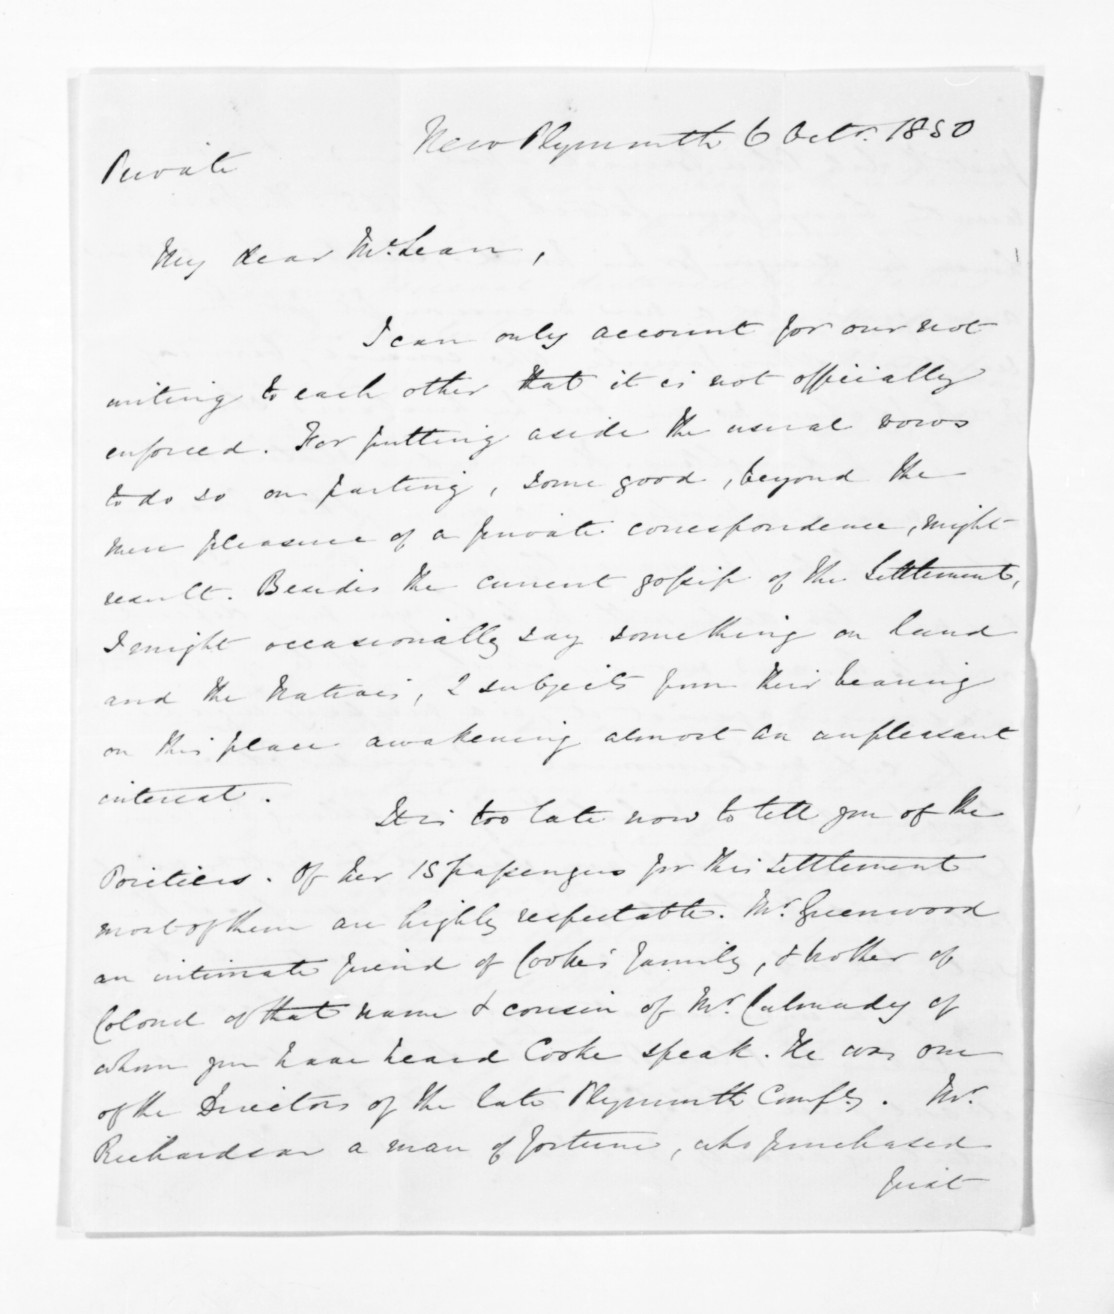 New Plymouth 6 Octr. 1850
Private
My dear McLean,
I can only account for our not
writing to each other that it is not officially
enforced. For putting aside the usual vows
to do so on parting, some good, beyond the
mere pleasure of a private correspondence, might
result. Besides the current gossip of the Settlement,
I might occasionally say something on land
and the Natives, 2 subjects from their bearing
on this place awakening almost an unpleasant
interest.
It is too late now to tell you of the
Poictiers. Of her 15 passengers for this Settlement
most of them are highly respectable. Mr. Greenwood
an intimate friend of Cooke's family, & brother of
Colonel of that name & cousin of Mr. Calmady of
whom you have heard Cooke speak. He was one
of the Directors of the late Plymouth Compy. Mr.
Richardson a man of fortune, who purchased
just